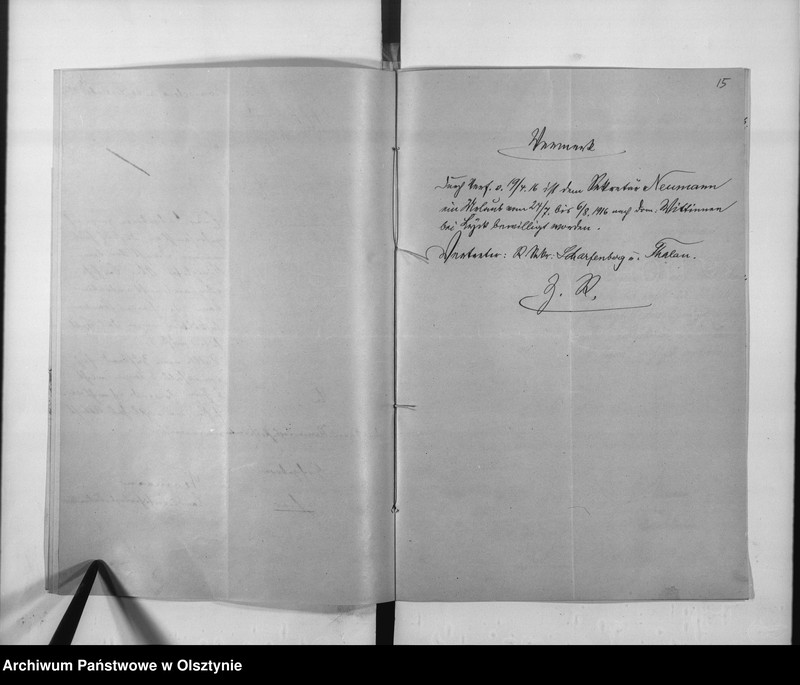 15
Vermerk
Durch Verf. v. 19/7. 16 ist dem Sekretär Neumann
ein Urlaub vom 24/7. bis 6/8. 1916 nach dom. Wittinnen
bei Lyck bewilligt worden.
Vertreter: R Sekr. Scharfenberg u. Thalau.
Archiwum Państwowe w Olsztynie